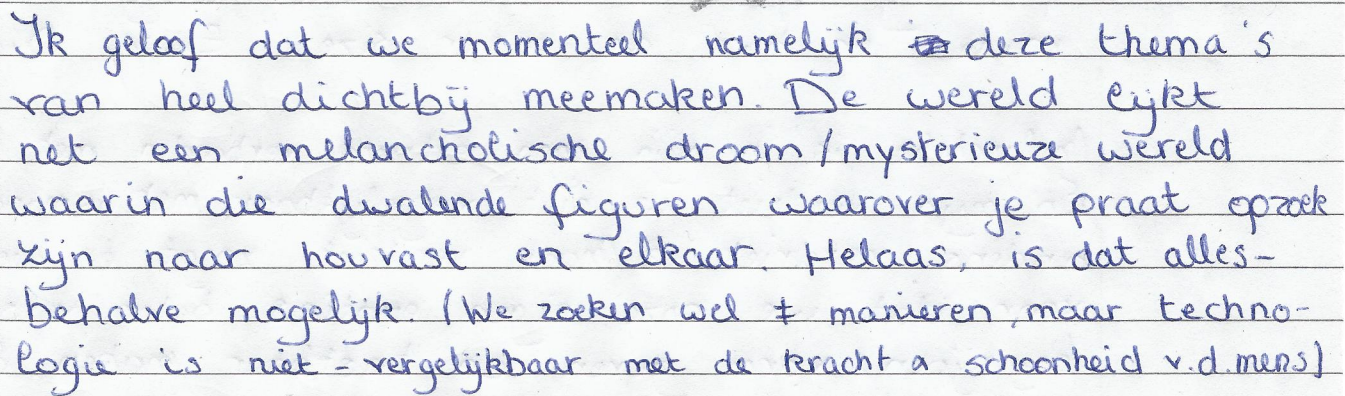 Ik geloof dat we momenteel namelijk deze thema's
van heel dichtbij meemaken. De wereld lijkt
net een melancholische droom/mysterieuze wereld
waarin die dwalende figuren waarover je praat opzoek
zijn naar houvast en elkaar. Helaas, is dat alles-
behalve mogelijk. (We zoeken wel ≠ manieren, maar techno-
logie is niet - vergelijkbaar met de kracht & schoonheid v.d. mens)